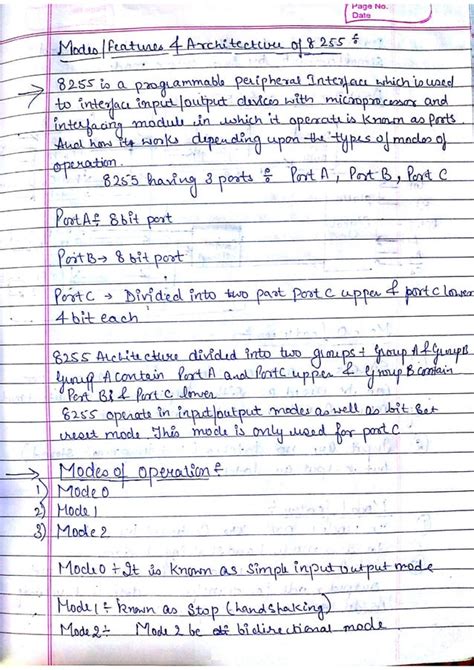 Page No.
Date
Modes/Features & Architecture of 8255 ÷
→ 8255 is a programmable Peripheral Interface which is used
to interface input/output devices with microprocessor and
interfacing module in which it operate is known as Ports.
And how it works depending upon the types of modes of
operation.
8255 having 3 ports ÷ Port A, Port B, Port C
Port A ÷ 8 bit port
Port B → 8 bit port
Port C → Divided into two part Port C upper & port C lower
4 bit each
8255 Architecture divided into two groups ÷ Group A & Group B
Group A contain Port A and Port C upper & Group B contain
Port B & Port C lower
8255 operate in input/output modes as well as bit set
reset mode This mode is only used for port C.
→ Modes of operation ÷
1) Mode 0
2) Mode 1
3) Mode 2
Mode 0 ÷ It is known as simple input output mode
Mode 1 ÷ known as Stop (handshaking)
Mode 2 ÷ Mode 2 be bidirectional mode